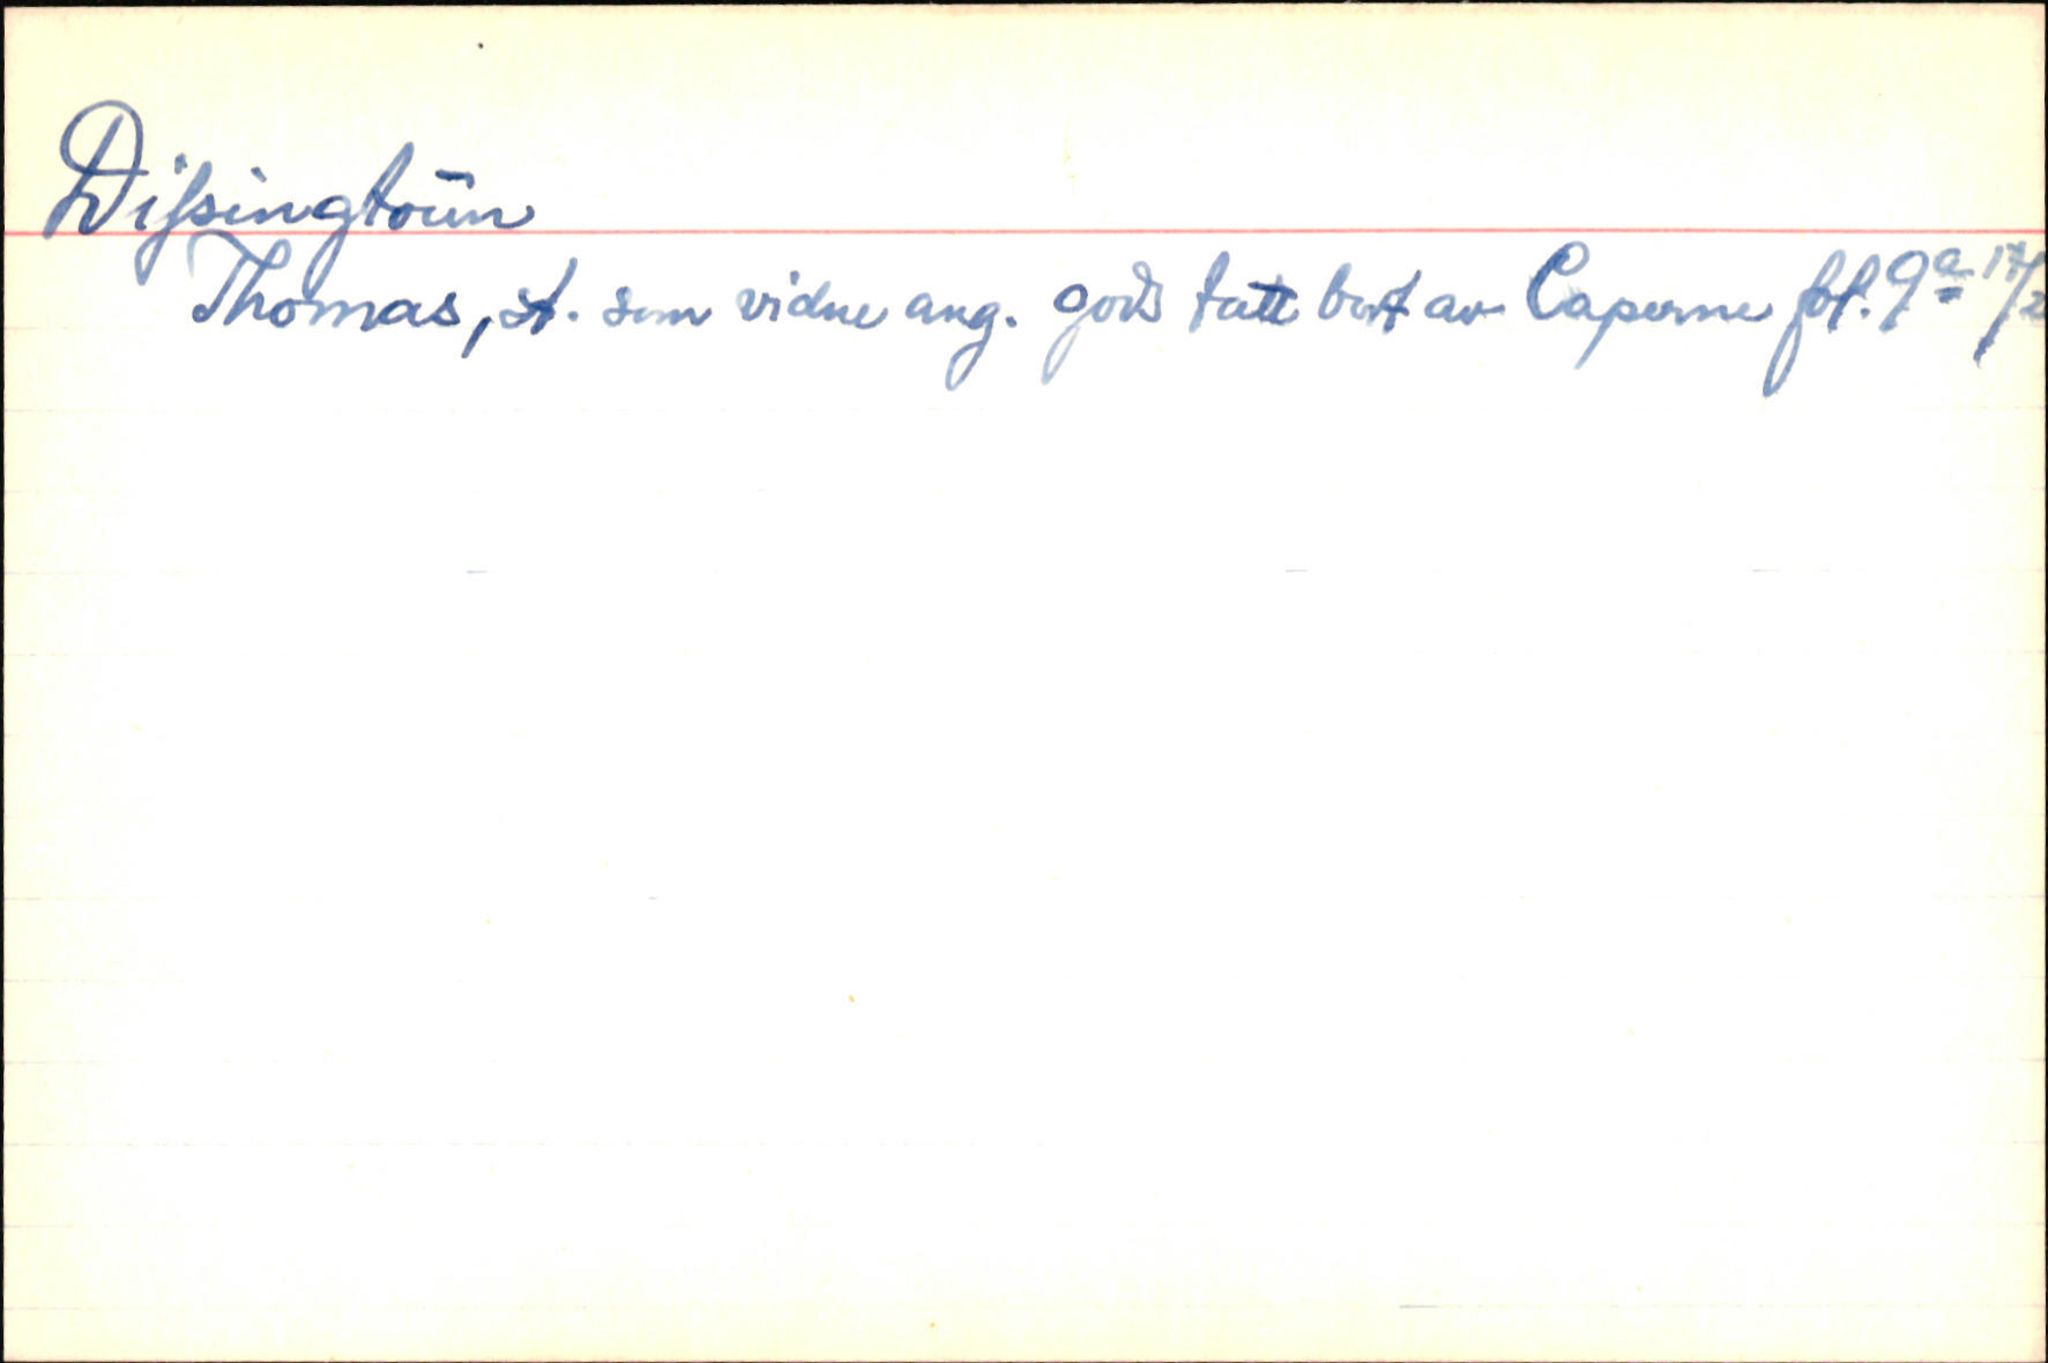 Dissingtoŭn
Thomas, st. som vidne ang. gods tatt bort av Caperne fol. 9a 17/2